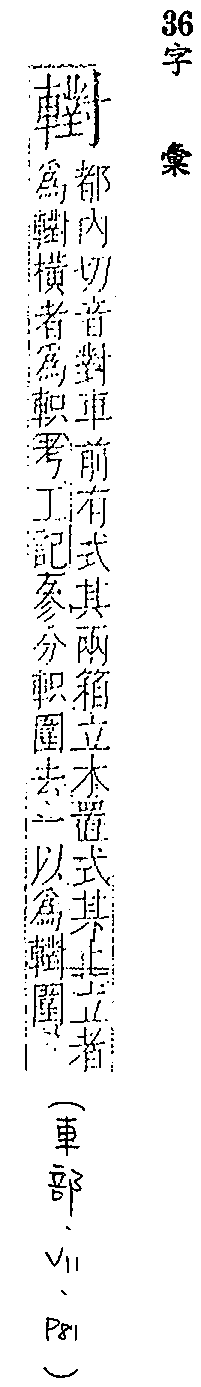 36
字彙
轛
都內切音對車前有式其兩箱立木置式其上立者
爲轛橫者爲軹考工記參分軹圍去一以爲轛圍
(車部、VII、P81)